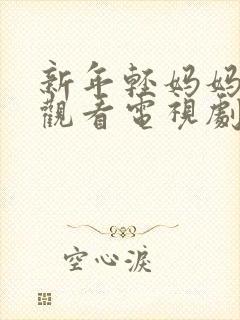 新年輕妈妈
觀看電視劇
空心淚